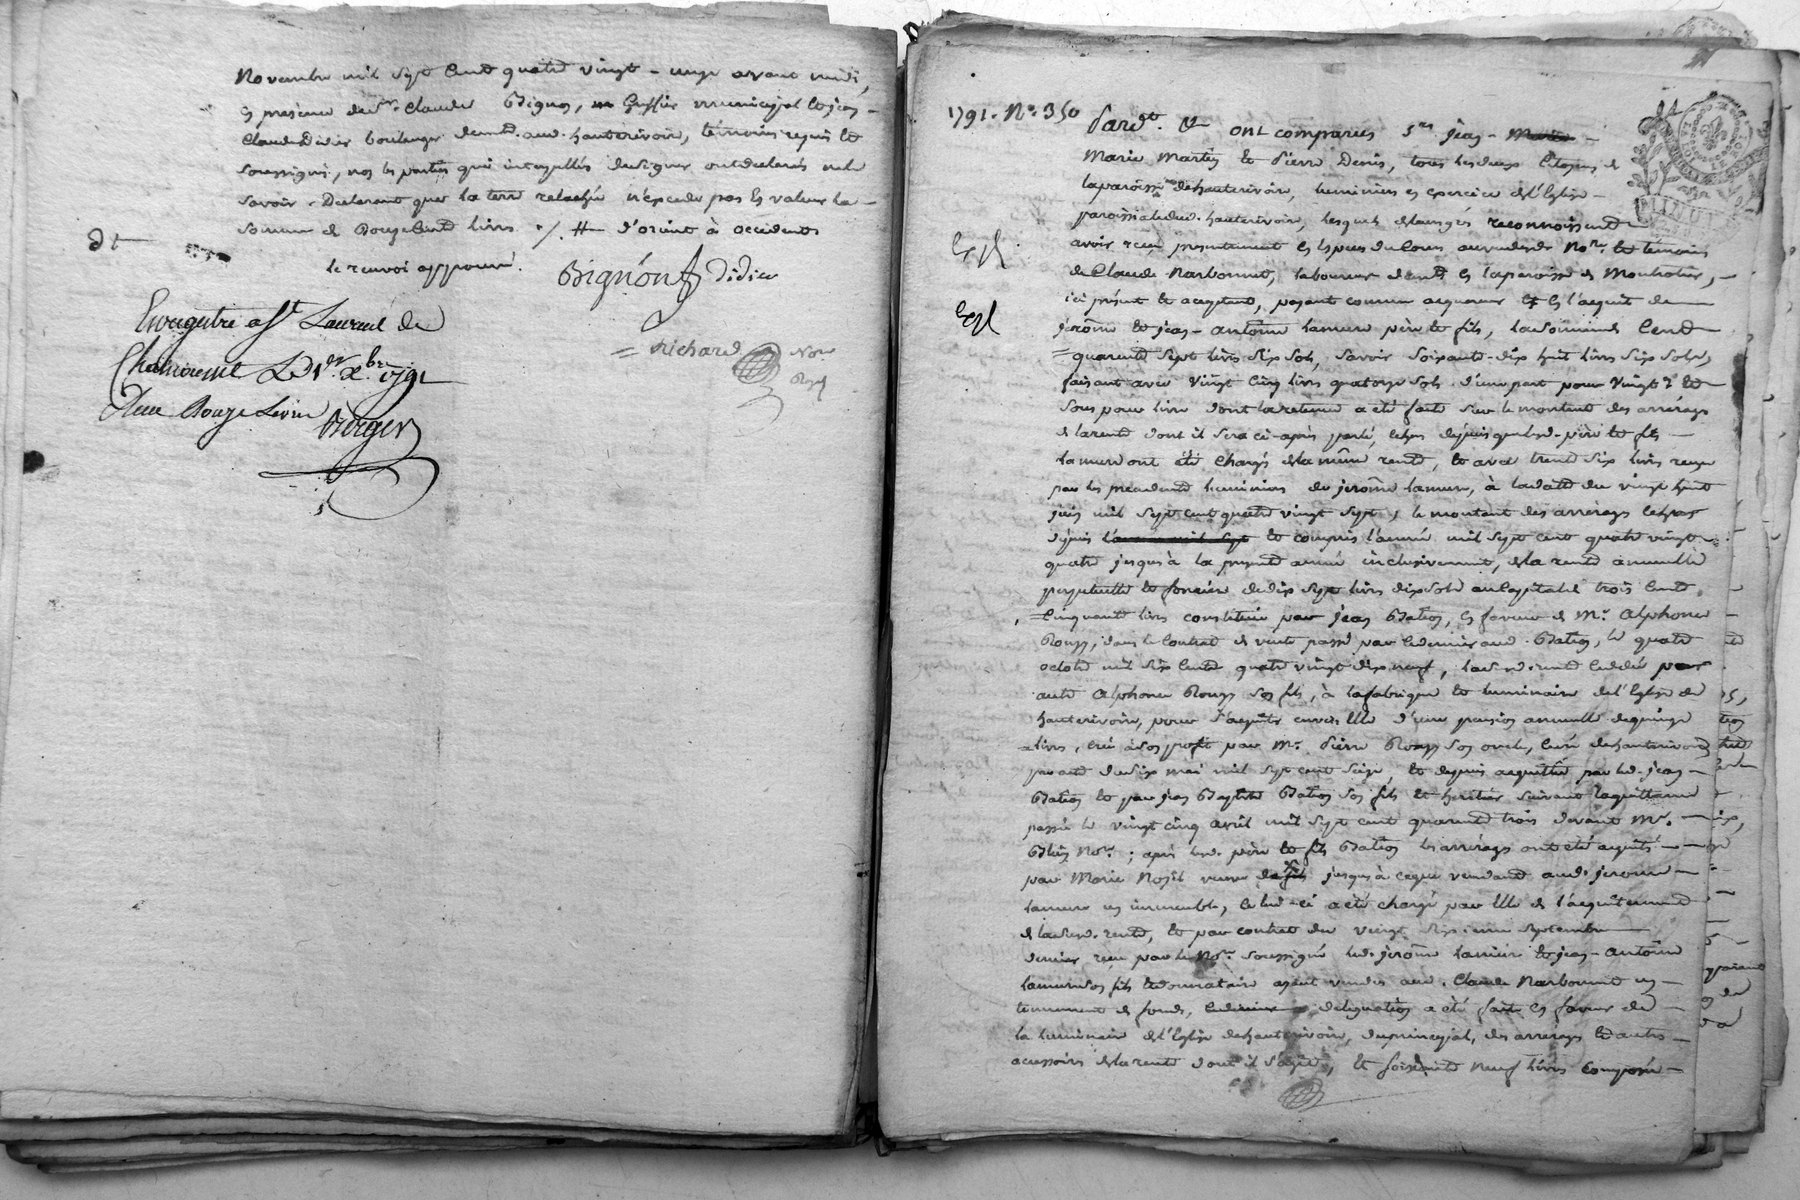 Novembre mil sept cent quatre vingt-onze avant midi,
en présence de sr Claude Bignon, greffier municipal et jean-
Claude Didier boulanger demt aud. hauterivoir, témoins requis et
soussignés, non les parties qui interpellés de signer ont déclaré ne le
savoir. Déclarant que la terre relachée n'excede pas en valeur la
somme de douze cent livres ./. # d'orient à occident
dt
le renvoi approuvé.
Bignon Didier
Enregistré a St Laurent de
Chamousset Le 1er Xbre 1791
Reçu Douze Livres
Berger
Richard Nore
Royal
1791. No. 350
Pardt. & ont comparus srs jean-
Marie Martin et Pierre Denis, tous les deux Citoyens de
la paroisse de hauterivoir, luminiers en exercice de l'Eglise
paroissiale dud. hauterivoir, lesquels de leur gré reconnoissent
avoir reçu présentement en espèces de cours au vu desd. Nore et témoins
Expl
de Claude Narbonnet, laboureur demt en la paroisse de Montrotier,
ici présent et acceptant, payant comme acquereur et en l'acquit de
Expl
jerôme et jean-antoine Lamure père et fils, la somme de Cent
quarante sept livres six sols, savoir soixante-dix huit livres six sols,
faisant avec vingt cinq livres quatorze sols d'une part pour vingt et
sous pour livre dont la retenue a été faite sur le montant des arrérages
de la rente dont il sera ci-après parlé, échus depuis que lesd. père et fils
Lamure ont été chargés de la même rente, et avec trente six livres reçue
par les précédents luminiers de jerôme Lamure, à la date du vingt huit
juin mil sept cent quatre vingt sept, le montant des arrérages échus
depuis et compris l'année mil sept cent quatre vingt
quatre jusqu'à la présente année inclusivement, de la rente annuelle
perpetuelle et foncière de dix sept livres dix sols au capital de trois cent
cinquante livres constituée par jean Bation, en faveur de Mr. Alphonse
Rouzy, dans le Contrat de vente passé par ce dernier aud. Bation, le quatre
octobre mil six cent quatre vingt dix neuf, lad. rente cédée par
autre Alphonse Rouzy son fils, à la fabrique et luminaire de l'Eglise de
hauterivoir, pour s'acquitter envers elle d'une pension annuelle de quinze
livres, créé à son profit par Mr. Pierre Rouzy son oncle, curé de hauterivoir
par acte du six mai mil sept cent seize, et depuis acquittée par led. jean
Bation et par jean Baptiste Bation son fils et heritier suivant la quittance
passée le vingt cinq avril mil sept cent quarante trois devant Mr.
Nore.; après lesd. père et fils Bation les arrérages ont été acquittés
par Marie veuve jusqu'à ce que vendant aud. jerome
Lamure un immeuble, celui-ci a été chargé par elle de l'acquittement
de lad. rente, et par contrat du vingt sixieme septembre
dernier reçu par le Nore. soussigné led. jerôme Lamure et jean-antoine
Lamure son fils et donnataire ayant vendu aud. Claude Narbonnet un
tennement de fonds, délégation a été faite en faveur de
la luminaire de l'Eglise de hauterivoir, du principal, des arrérages et autres
accessoirs de la rente dont il s'agit, et soixante neuf livres composées